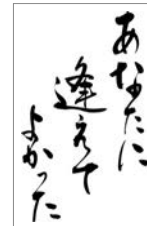 あなたに
逢えて
よかった